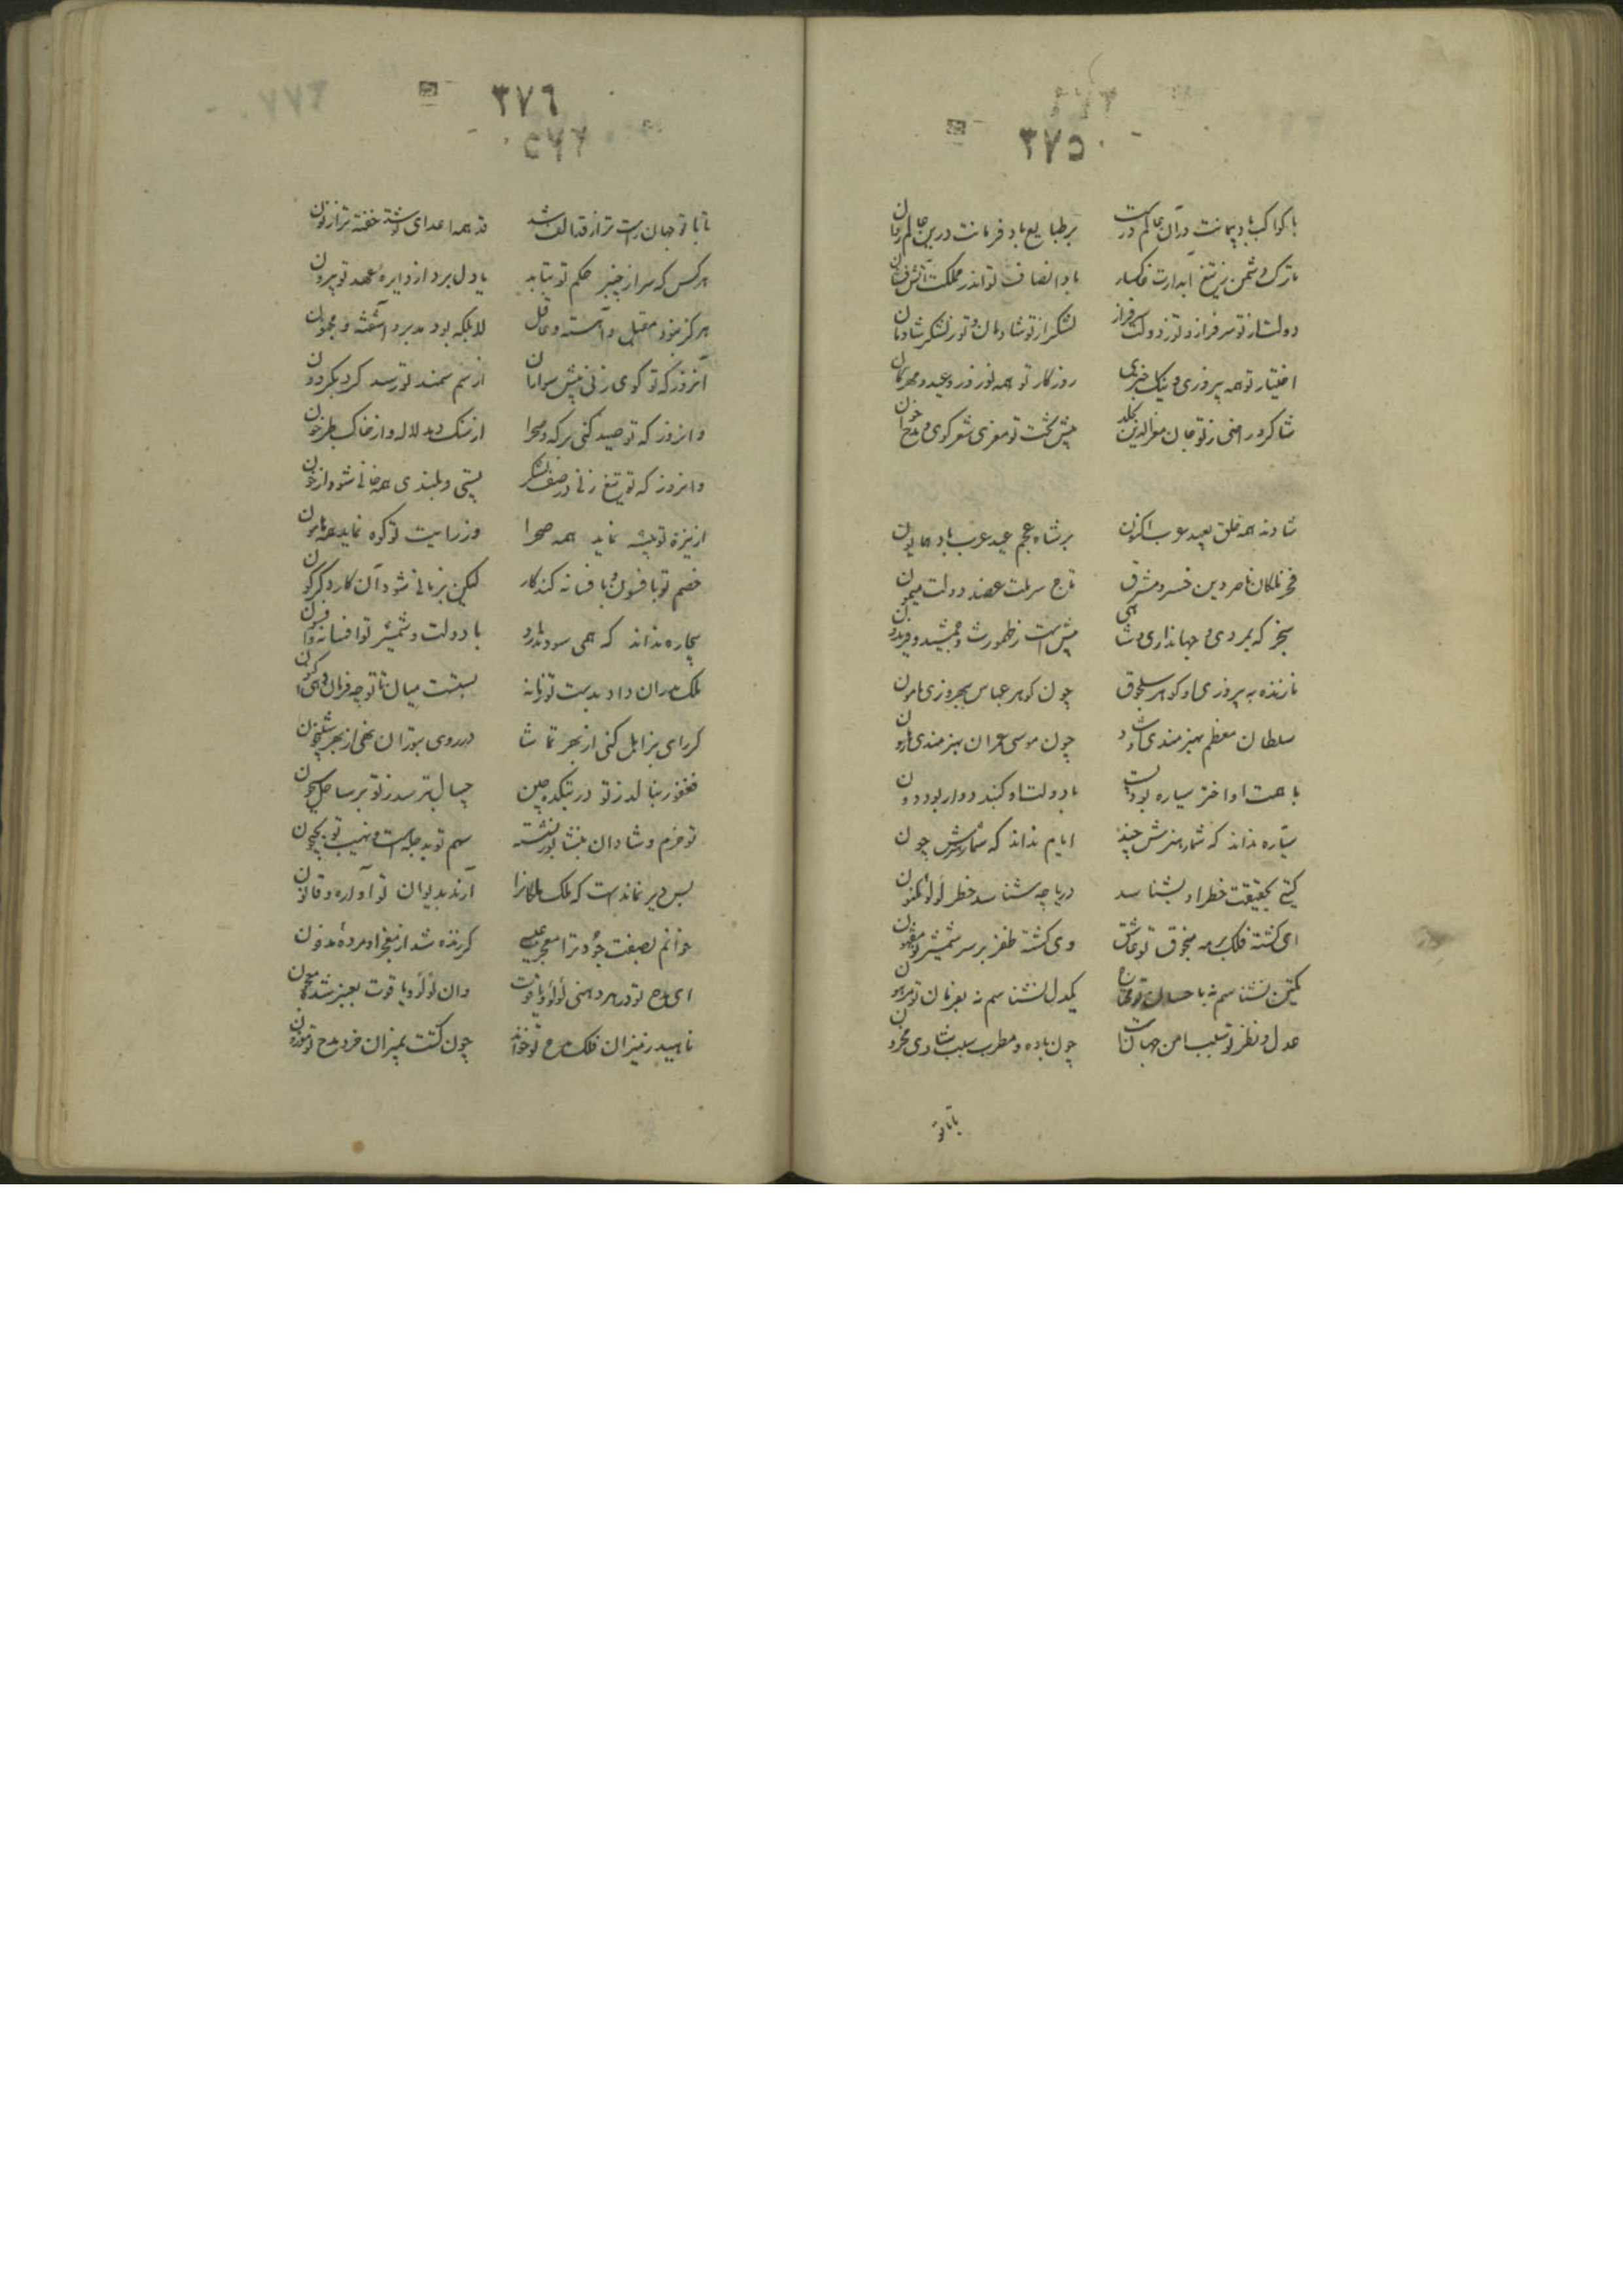 ٣٧٥
با کواکب باد پیمانت در آن عالم درست    بر طبایع باد فرمانت درین عالم روان
تارک دشمن ز تیغ آبدارت خاکسار    باد انصاف تو اندر مملکت آتش نشان
دولت از تو سرفراز و تو ز دولت سرفراز    لشکر از تو شادمان و تو ز لشکر شادمان
اختیار تو همه پیروزی و نیک اختری    روزکار تو همه نوروز و عید و مهرکان
شاکر و راضی ز تو جان معزالدین بخلد    پیش تخت تو معزی شعرکوی و مدح خوان
شادند همه خلق بعید عرب اکنون    بر شاه عجم عید عرب باد همایون
فخر ملکان ناصر دین خسرو مشرق    تاج سر ملت عضد دولت میمون
سنجر که بمردی و جهانداری و شاهی    بیش است ز طهمورث و جمشید و فریدون
نازنده به پیروزی او کوهر سلجوق    چون کوهر عباس ببهروزی مامون
سلطان معظم بهنرمندی او شاد    چون موسی عمران بهنرمندی هارون
با همت او اختر سیاره بود پست    با دولت او کنبد دوار بود دون
سیاره نداند که شمار هنرش چند    ایام نداند که شمار هنرش چون
کیتی بحقیقت خطر او بشناسد    دریا چه شناسد خطر لؤلؤ مکنون
ای کشته فلک بر مه منجوق تو عاشق    وی کشته ظفر بر سر شمشیر تو مفتون
یکتن نشناسم نه باحسان تو    یکدل نشناسم نه بفرمان تو مرهون
عدل و نظر تو سبب امن جهانست    چون باده و مطرب سبب شادی محزون
تا با تو
٣٧٦
تا با تو جهان راست تر از قد الف شد    قد همه اعدای تو شد خفته تر از نون
هر کس که سر از چنبر حکم تو بتابد    یا دل برد از دایرهٔ عهد تو بیرون
هرکز نبود مقبل و آهسته و عاقل    لا بلکه بود مدبر و آشفته و مجنون
آنروز که تو کوی زنی پیش سواران    از سم سمند تو رسد کرد بکردون
وانروز که تو صید کنی بر که و صحرا    از سنک دمد لاله و از خاک طبرخون
وانروز که تو تیغ زنی در صف لشکر    پستی و بلندی همه خالی شود از خون
از نیزه تو بیشه نماید همه صحرا    وز رایت تو کوه نماید همه هامون
خصم تو بافسون و بافسانه کند کار    لیکن بزمانی شود آن کار دکرکون
بیچاره نداند که همی سود ندارد    با دولت و شمشیر تو افسانه و افسون
ملک پدران داد بدست تو زمانه    بستست میان تا تو چه فرمان دهی اکنون
کر رای بزابل کنی از بهر تماشا    ور روی بتوران نهی از بهر شبیخون
فغفور بنالد ز تو در بتکده چین    جیپال بترسد ز تو بر ساحل سیحون
تو خرم و شادان بنشابور نشسته    سهم تو بدجله است و نهیب تو بجیحون
بس دیر نماندست که ملک ملکانرا    آرند بدیوان تو آواره و قانون
خوانم بصفت جود ترا معجز عیسی    کر زنده شد از معجز او مردهٔ مدفون
ای مدح تو در هر دهنی لؤلؤ و یاقوت    وان لؤلؤ و یاقوت بعنبر شده معجون
ناهید ز میزان فلک مدح تو خواند    چون کشت بمیزان خرد مدح تو موزون